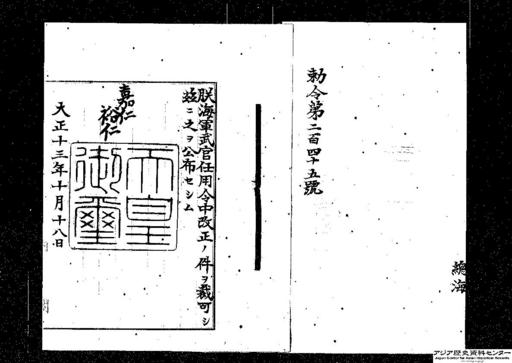 勅令第二百四十五號
總海
朕海軍武官任用令中改正ノ件ヲ裁可シ
茲ニ之ヲ公布セシム
嘉仁
裕仁
天皇御璽
大正十三年十月十八日
アジア歴史資料センター
Japan Center for Asian Historical Records